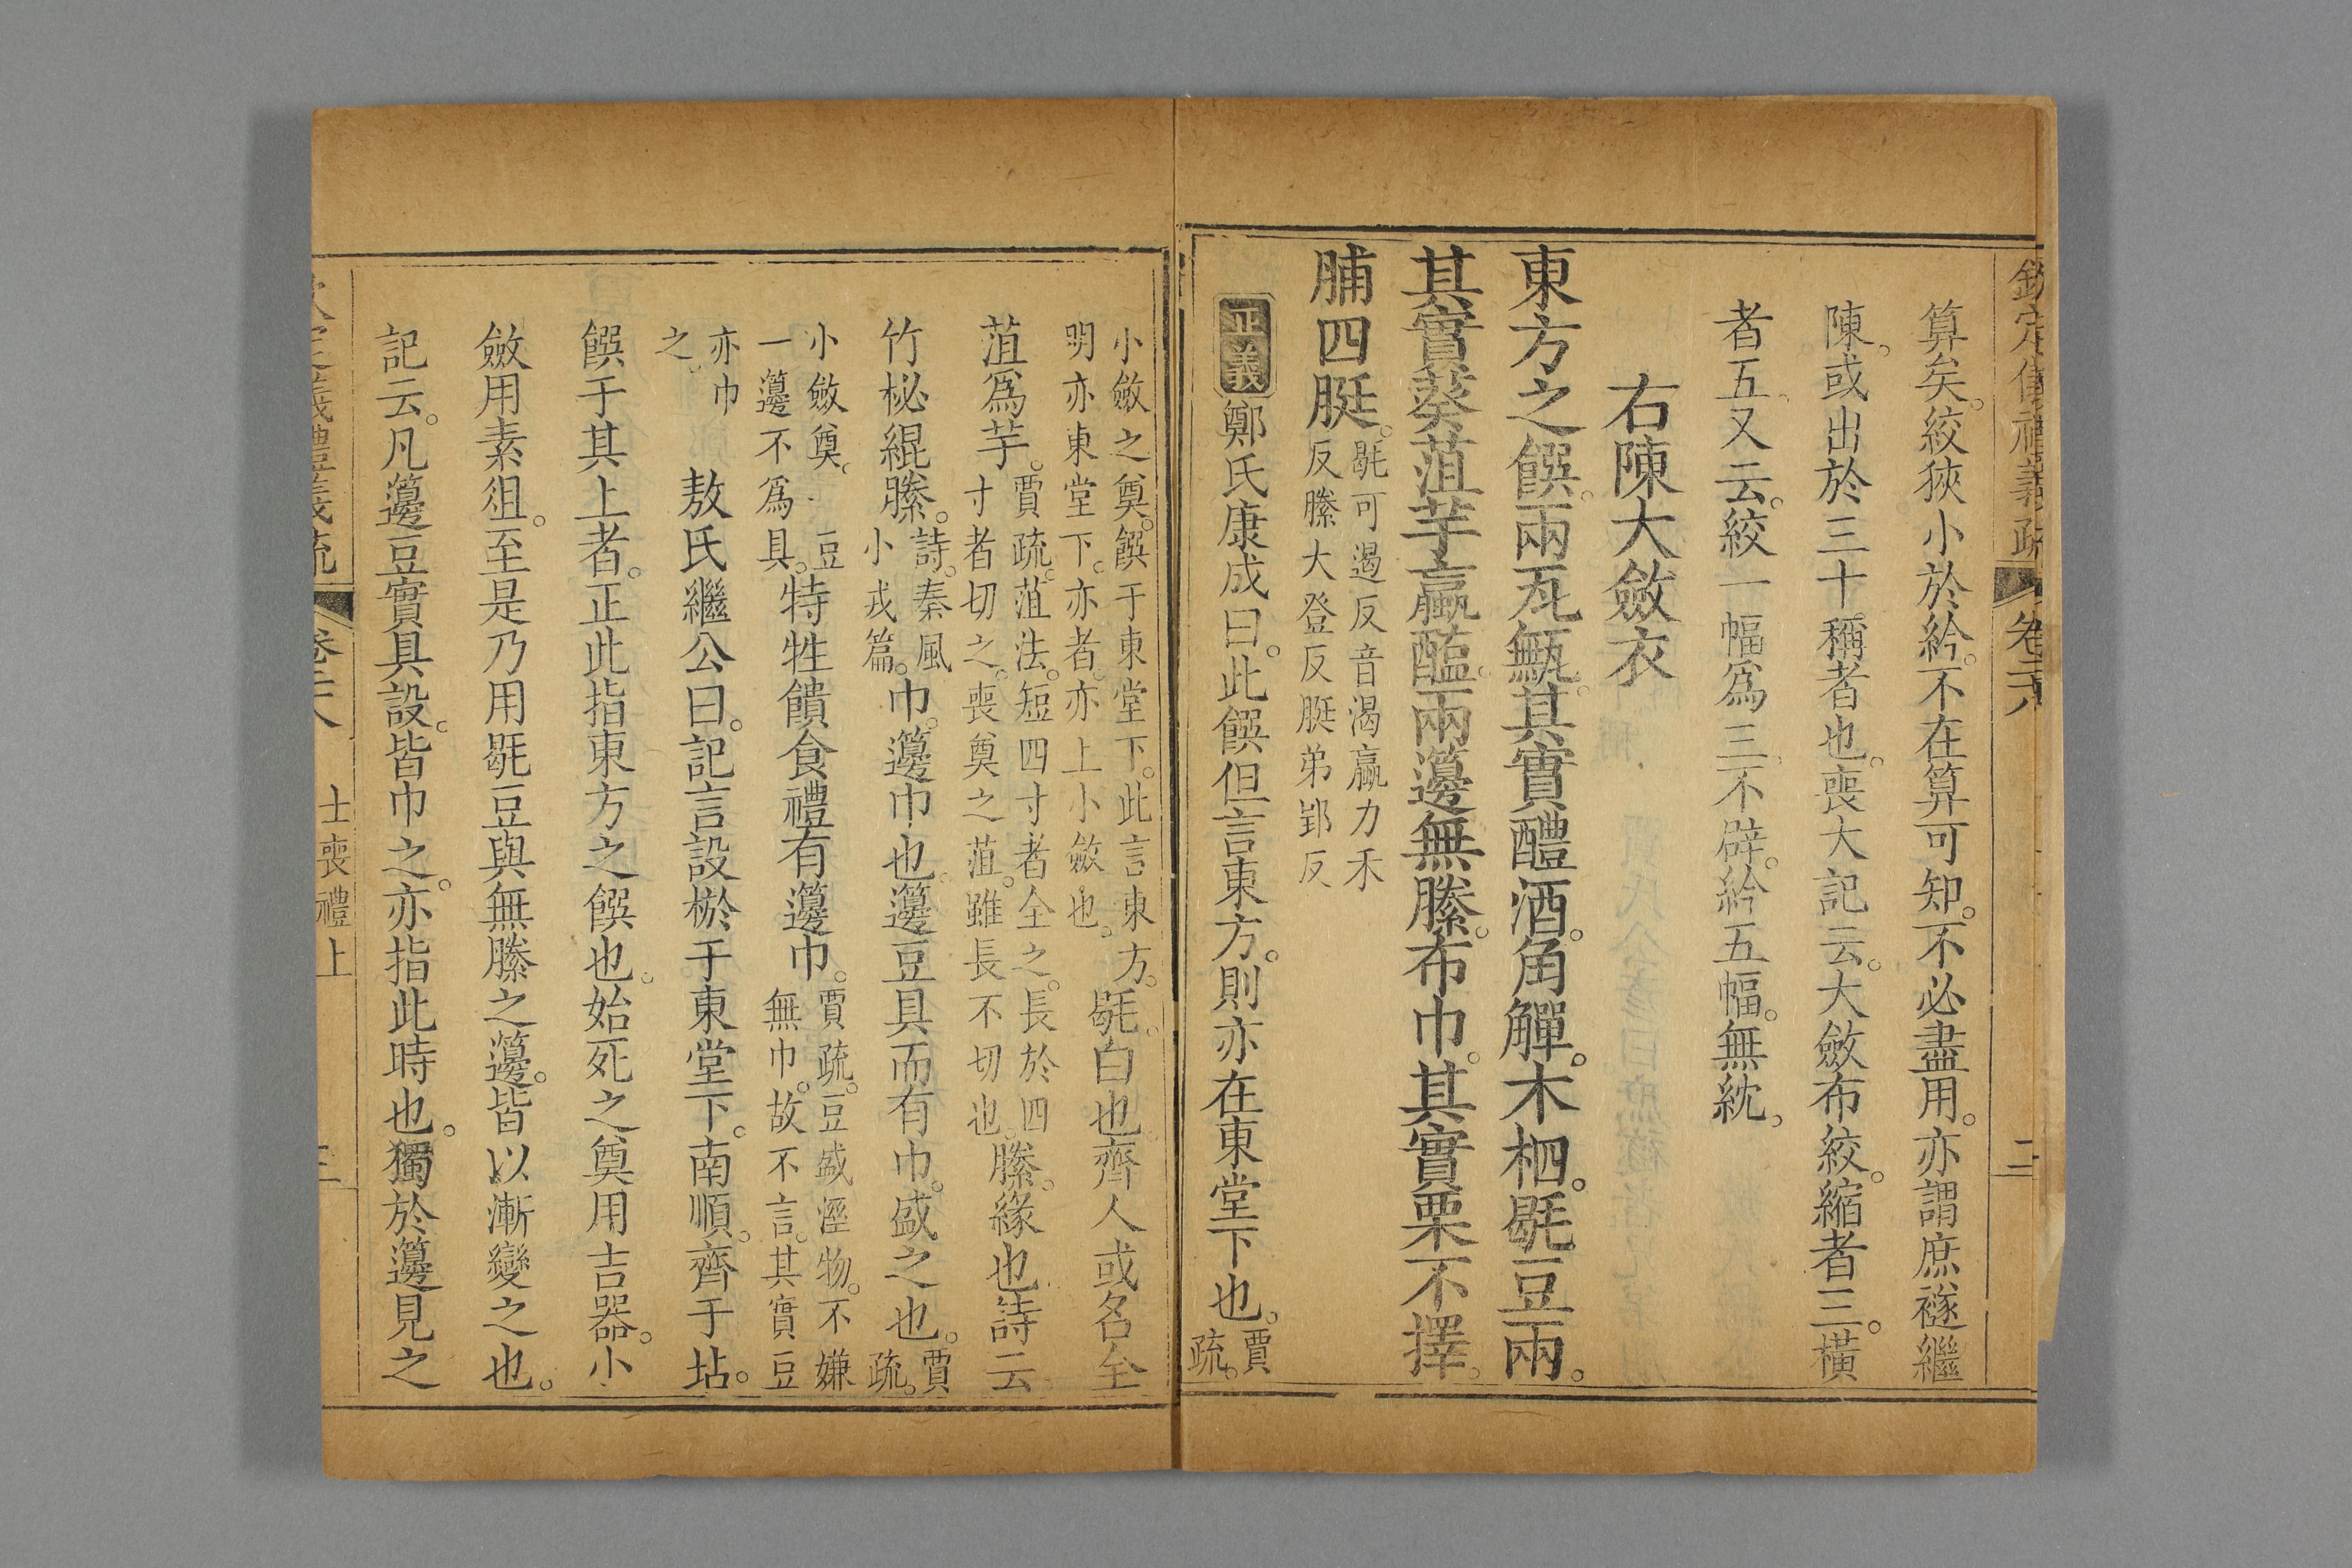 欽定儀禮義疏 卷二十八 二
算矣。絞狹小於紟。不在算可知。不必盡用。亦謂庶襚繼
陳。或出於三十稱者也。喪大記云。大斂布絞。縮者三。橫
者五。又云。絞一幅爲三。不辟。紟五幅。無紞。
右陳大斂衣
東方之饌。兩瓦甒。其實醴酒。角觶。木柶。毼豆兩。
其實葵菹芋。蠃醢。兩籩無縢。布巾。其實栗不擇。
脯四脡。
毼可遏反音渴蠃力禾
反縢大登反脡弟郢反
正義 鄭氏康成曰。此饌但言東方。則亦在東堂下也。
賈
疏。
小斂之奠。饌于東堂下。此言東方。
明亦東堂下。亦者。亦上小斂也。
毼。白也。齊人或名全
菹爲芋。
賈疏。菹法。短四寸者全之。長於四
寸者切之。喪奠之菹。雖長不切也。
縢。緣也。詩云
竹柲緄縢。
詩。秦風
小戎篇。
巾。籩巾也。籩豆具而有巾。盛之也。
賈
疏。
小斂奠。 豆
一籩不爲具。
特牲饋食禮有籩巾。
賈疏。豆盛溼物。不嫌
無巾。故不言。其實豆
亦巾
之。
敖氏繼公曰。記言設棜于東堂下。南順。齊于坫。
饌于其上者。正此指東方之饌也。始死之奠用吉器。小
斂用素俎。至是乃用毼豆與無縢之籩。皆以漸變之也。
記云。凡籩豆實具設。皆巾之。亦指此時也。獨於籩見之
欽定儀禮義疏 卷二十八 士喪禮上 三